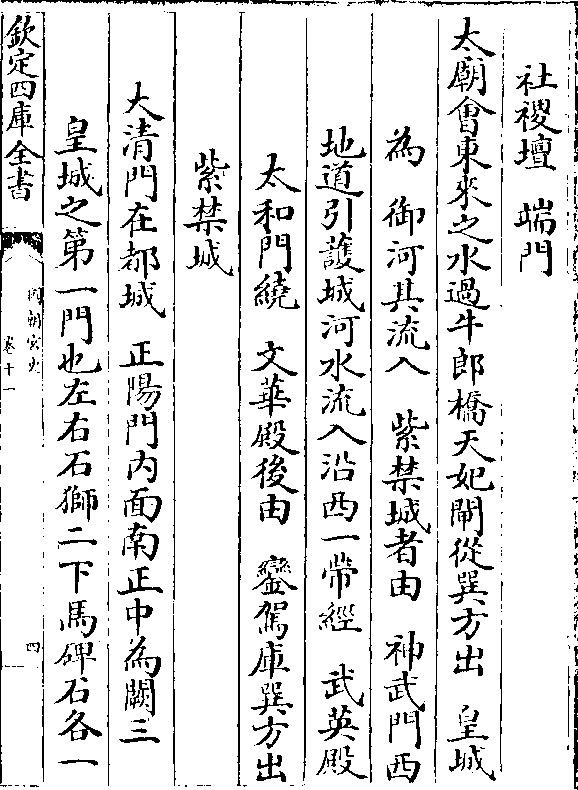 社稷壇　端門
太廟會東來之水過牛郎橋天妃閘從巽方出　皇城
為　御河其流入　紫禁城者由　神武門西
地道引護城河水流入沿西一帶經　武英殿
太和門繞　文華殿後由　鑾駕庫巽方出
紫禁城
大清門在都城　正陽門内面南正中為闕三
皇城之第一門也左右石獅二下馬碑石各一
欽定四庫全書
國朝宮史
卷十一
四